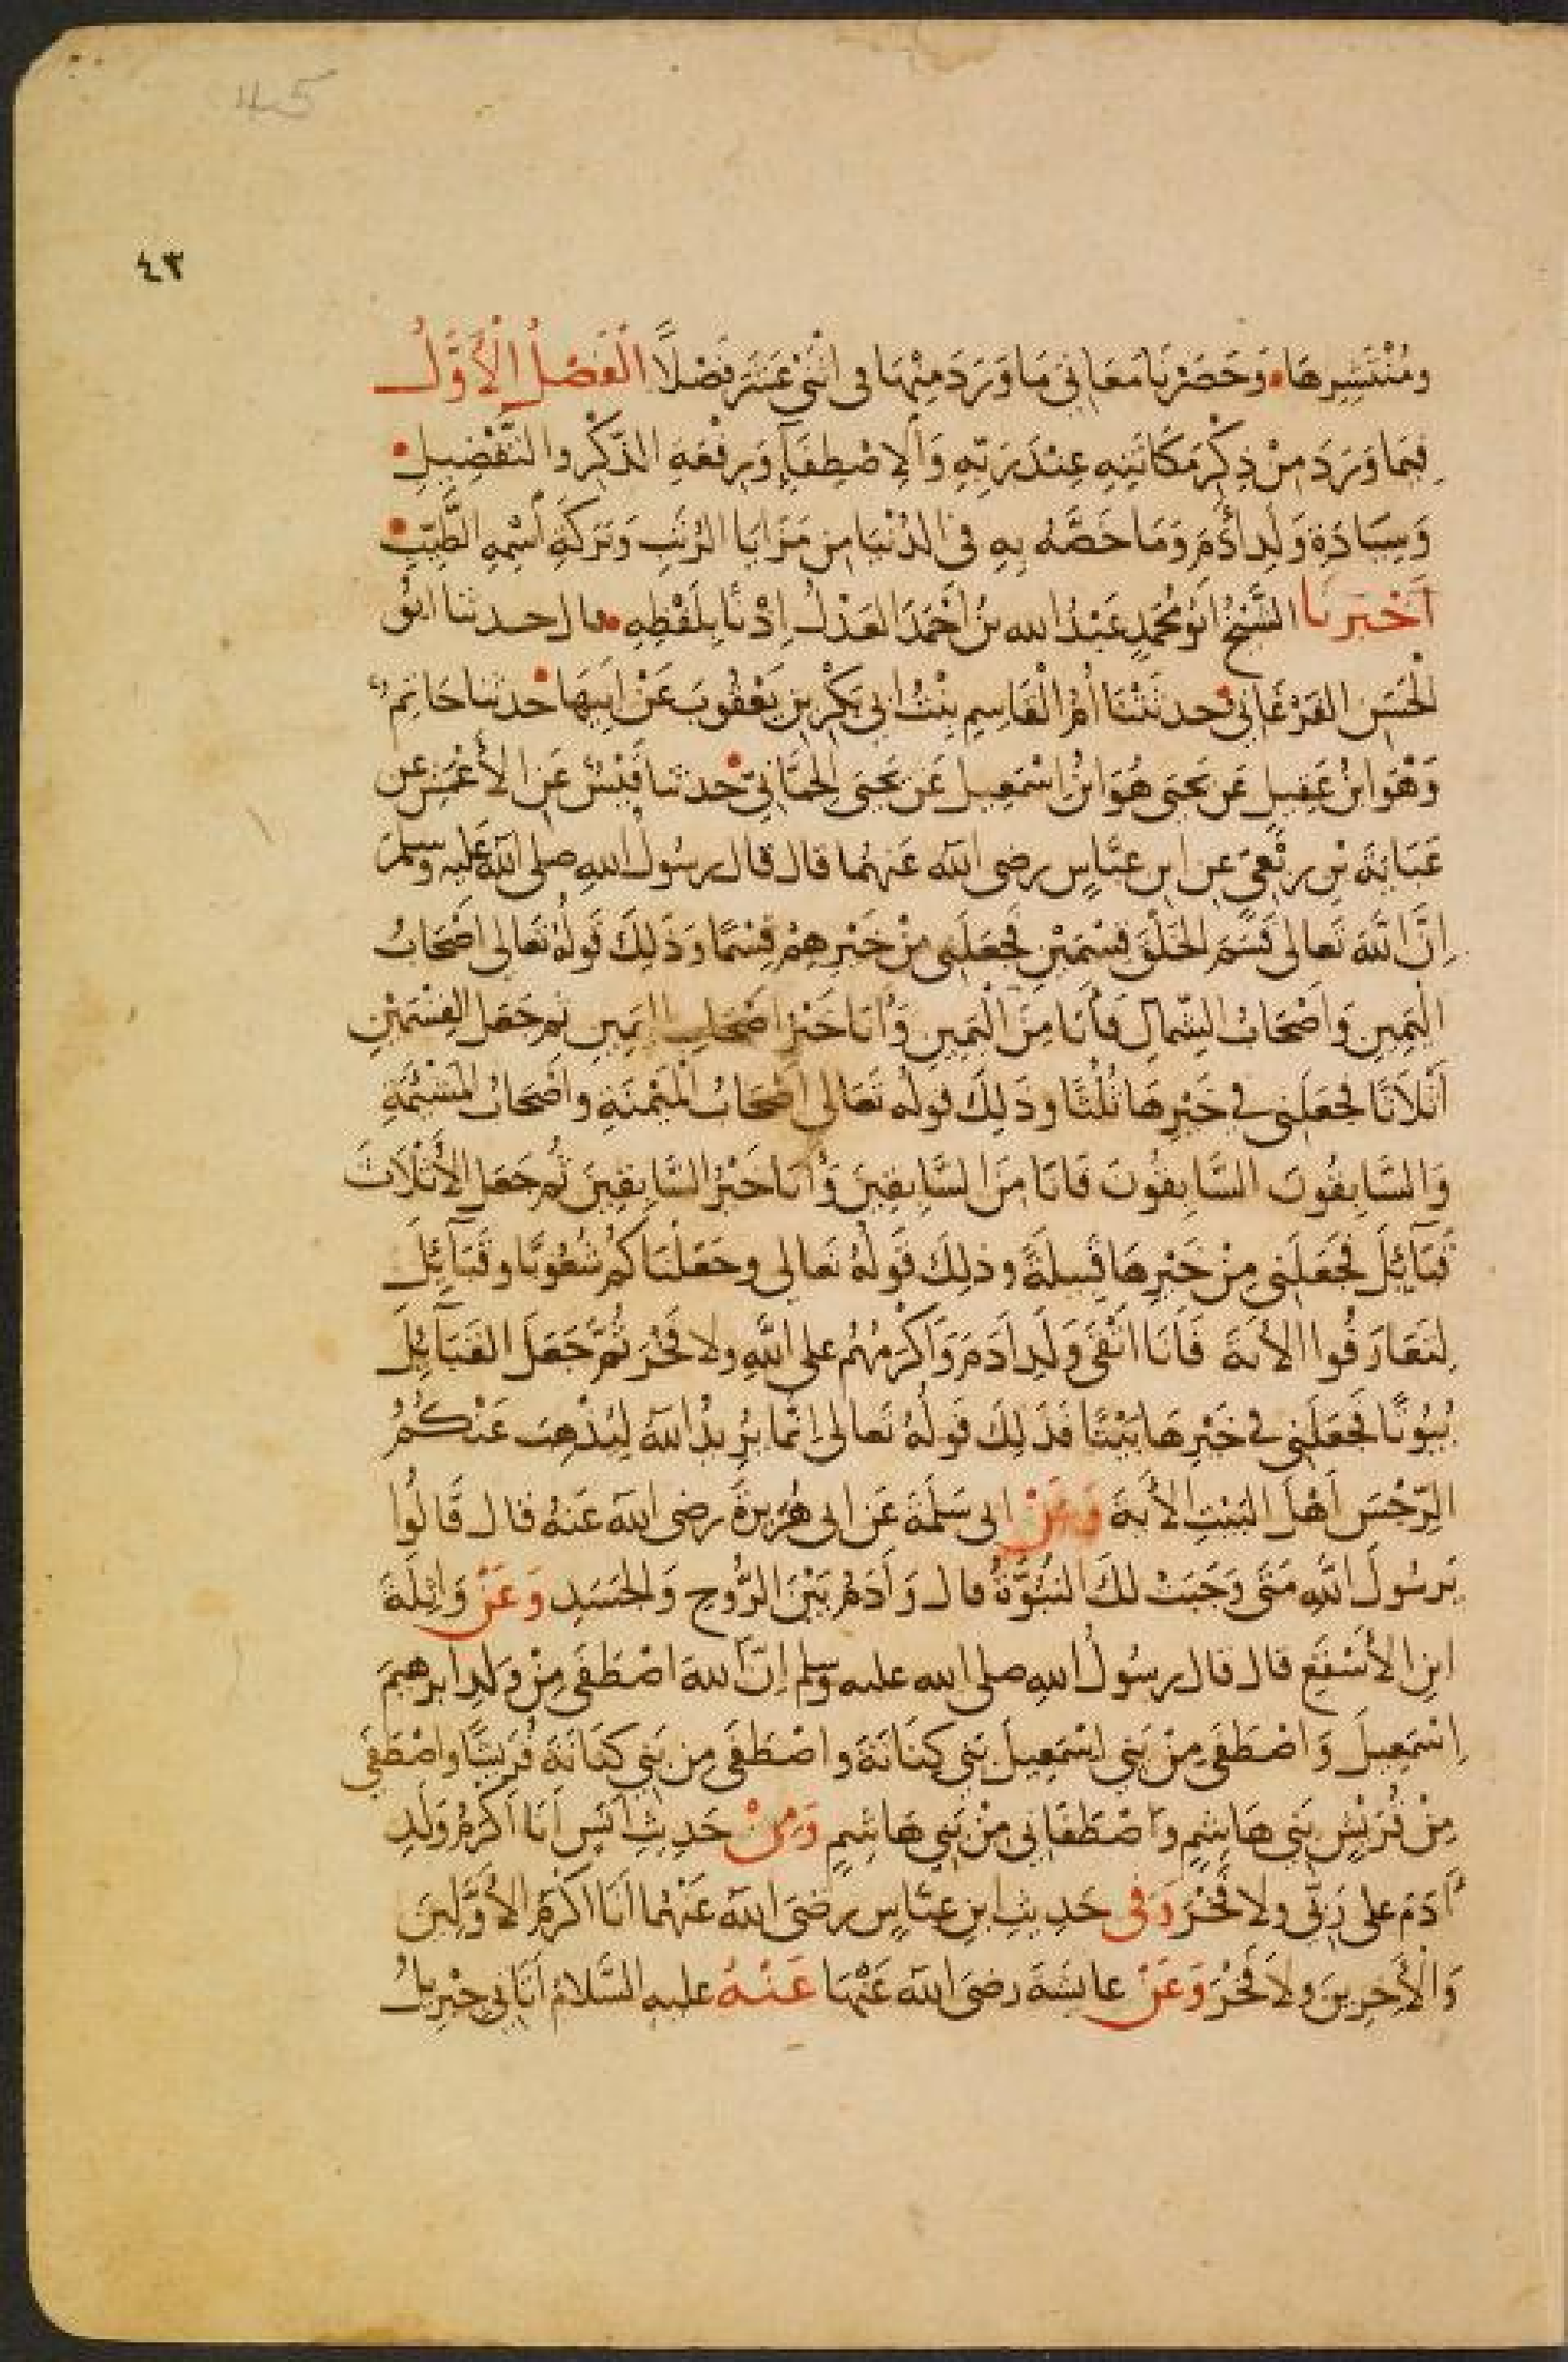 45
٤٣
ومُنْتَشِرِهَا وَحَصَرْنَا مَعَانِيَ مَا وَرَدَ مِنْهَا فى اثْنَىْ عَشَرَ فَصْلًا الْفَصْلُ الْأَوَّلُ
فِيمَا وَرَدَ مِنْ ذِكْرِ مَكَانَتِهِ عِنْدَ رَبِّهِ وَالاِصْطِفَآءِ وَرِفْعَةِ الذِّكْرِ والتَّفْضِيلِ
وَسِيَادَةِ وَلَدِ اٰدَمَ وَمَا خَصَّهُ بِهِ فى الدُّنْيَا مِن مَزَايَا الرُّتَبِ وَبَرَكَةِ اسْمِهِ الطَّيِّبِ
أَخْبَرَنَا الشَّيْخُ أَبُو مُحَمَّدٍ عَبْدُ الله بْنُ أَحْمَدَ العَدْلُ اِذْنًا بِلَفْظِهِ قال حدثنا ابُو
الْحَسَنِ الفَرْغَانِى حدثَتْنَا أُمُّ الْقَاسِمِ بِنْتُ ابى بَكْرِ بنِ يَعْقُوبَ عَنْ اَبِيهَا حدثنا حَاتِمٌ
وَهْوَ ابنُ عَقِيلٍ عَن يَحيَى هُوَ ابْنُ اسْمعِيل عَن يَحيَى الحِمَّانِىّ حدثنا قَيْسٌ عَنِ الأَعْمَشِ عن
عَبَايَةَ بْنِ رِبْعِىٍّ عنِ ابنِ عبَّاسٍ رضى الله عَنهُمَا قال قال رسُولُ اللهِ صلى اللهُ عَليه وسلَّمَ
اِنَّ اللهَ تَعالى قَسَمَ الخَلْقَ قِسْمَيْنِ فَجَعَلَنِى مِنْ خَيْرِهِمْ قِسْمًا وَذَلِكَ قَولُهُ تَعَالى اَصْحَابُ
الْيَمِينِ وَاَصْحَابُ الشِّمالِ فَأَنَا مِنْ اَصْحَابِ الْيَمِينِ وَأَنَا خَيْرُ اَصْحَابِ اليَمِينِ ثم جَعَلَ القِسْمَيْنِ
أَثْلَاثًا فجَعَلَنِى فى خَيْرِهَا ثُلُثًا وذَلِكَ قولُه تَعَالى أَصْحَابُ الْمَيْمَنَةِ واَصْحَابُ المَشْئَمَةِ
وَالسَّابِقُونَ السَّابِقُونَ فَانَا مِنَ السَّابِقِينَ وَأَنَا خَيْرُ السَّابِقِينَ ثُم جَعَل الأَثْلَاثَ
قَبَآئِلَ فَجَعَلَنِى مِنْ خَيْرِهَا قَبِيلَةً وذلِكَ قَولُهُ تَعالى وجَعَلْنَاكُم شُعُوبًا وقَبَآئِلَ
لِتَعَارَفُوا الآيَةَ فَأَنَا اَتْقَى وَلَدِ اٰدَمَ وَاَكْرَمُهُم على اللهِ ولا فَخْرَ ثُمَّ جَعَلَ القَبَآئِلَ
بُيُوتًا فَجَعَلَنِى فى خَيْرِهَا بَيْتًا فَذَلِكَ قَولُهُ تَعالى اِنَّمَا يُرِيدُ اللهُ لِيُذْهِبَ عَنْكُمُ
الرِّجْسَ اَهْلَ البَيْتِ الآيَةَ وَعَنْ ابى سَلَمَةَ عَن ابى هُرَيرَةَ رضى الله عَنهُ قال قَالُوا
يَرسُولَ اللهِ مَتَى وَجَبَتْ لكَ النُّبُوَّةُ قال وَاٰدَمُ بَيْنَ الرُّوحِ وَالجَسَدِ وَعَنْ وَاثِلَةَ
ابنِ الأَسْقَعِ قال قال رسُولُ اللهِ صلى الله عليه وسلم اِنَّ اللهَ اصْطَفَى مِنْ وَلَدِ ابرهيمَ
اِسْمَعِيلَ وَاصْطَفَى مِنْ بَنِى اِسْمَعِيلَ بَنِى كِنَانَةَ واصْطَفَى مِن بَنِى كِنَانَةَ قُرَيشًا واصْطَفَى
مِنْ قُرَيْشٍ بَنِى هَاشِمٍ وَاصْطَفَانِى مِنْ بَنِى هَاشِمٍ وَمِنْ حَدِيثِ اَنَسٍ اَنَا اَكْرَمُ وَلَدِ
اٰدَمَ على رَبِّى ولا فَخْرَ وَفى حَدِيثِ ابنِ عبَّاسٍ رضىَ الله عَنْهُمَا اَنَا اَكْرَمُ الأَوَّلِينَ
وَالْاٰخِرِينَ ولَا فَخْرَ وَعَنْ عايشَةَ رضىَ الله عَنْهَا عَنْهُ عليهِ السَّلامُ اَتَانِى جِبْرِيلُ